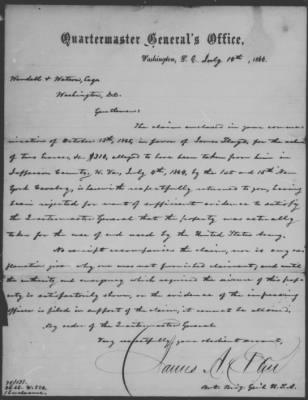 Quartermaster General's Office,
Washington, D. C. July 10th, 1866.
Wendell & Watson, Esqs.
Washington, D.C.
Gentlemen:
The claim enclosed in your commu-
nication of October 18th, 1865, in favor of James for the value
of two horses, &c. $310, alleged to have been taken from him in
Jefferson County, W. Va, July 9th, 1864, by the 1st and 15th New
York Cavalry, is herewith respectfully returned to you, having
been rejected for want of sufficient evidence to satisfy
the Quartermaster General that the property was actually
taken for the use of and used by the United States Army.
No receipt accompanies the claim, nor is any ex-
planation given why one was not furnished claimant, and until
the authority and emergency which required the seizure of this prop-
erty is satisfactorily shown, or the evidence of the impressing
officer is filed in support of the claim, it cannot be allowed.
By order of the Quartermaster General
Very respectfully your obedient servant,
James A.
Bvt. Brig. Gen'l U.S.A.
1 Enclosure.